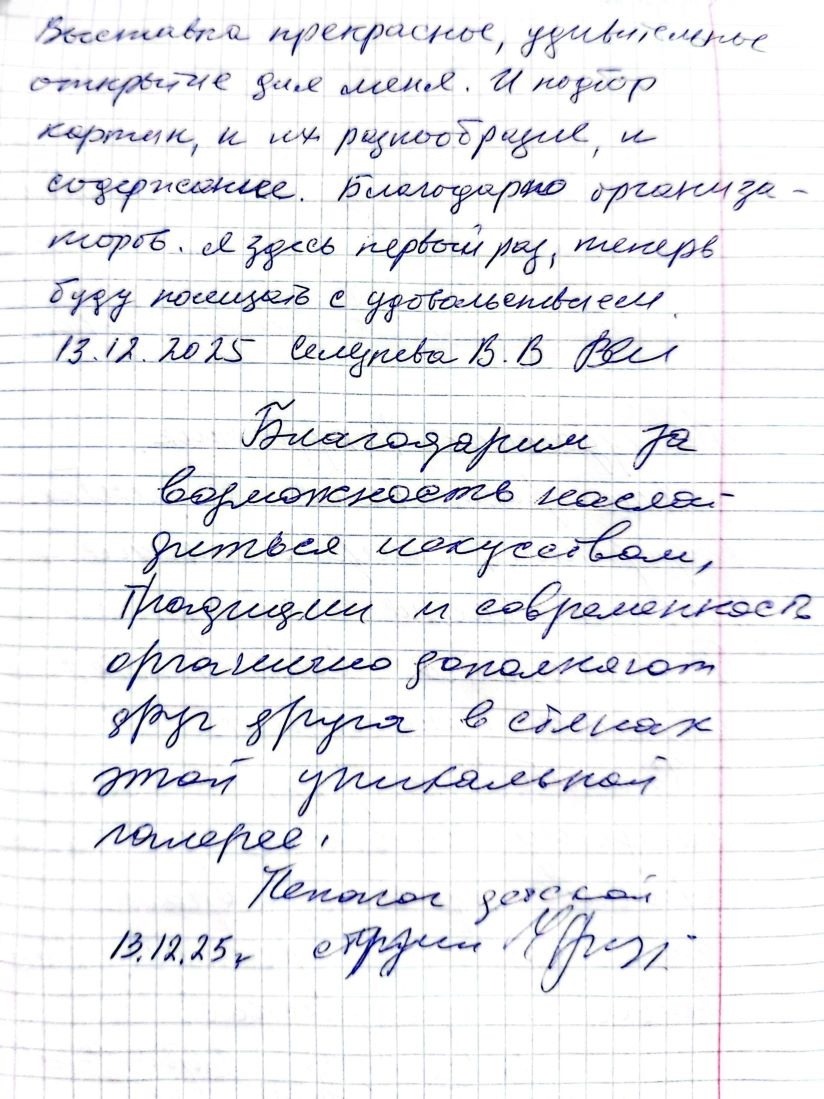 Выставка прекрасное, удивительное
открытие для меня. И подбор
картин, и их разнообразие, и
содержание. Благодарю организа-
торов. Я здесь первый раз, теперь
буду посещать с удовольствием.
13.12.2025 В.В
Благодарим за
возможность насла-
диться искусством,
Традиции и современность
органично дополняют
друг друга в стенах
этой уникальной
галерее.
детской
13.12.25г студии